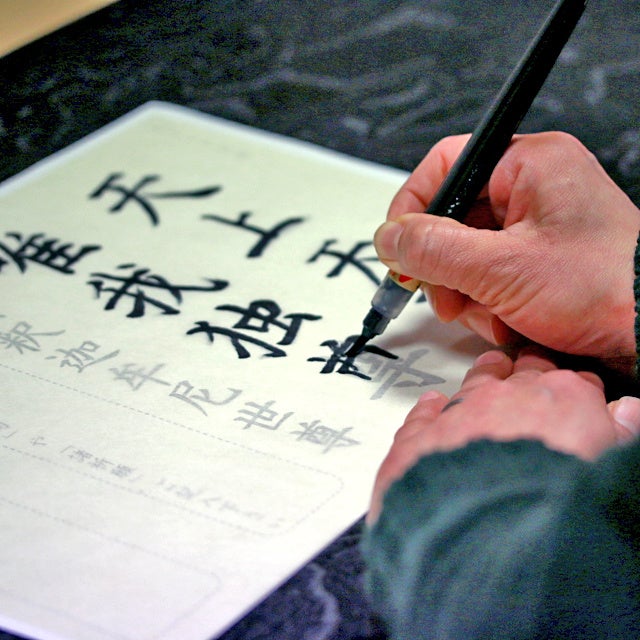 天上天
唯我独尊
釈迦牟尼世尊